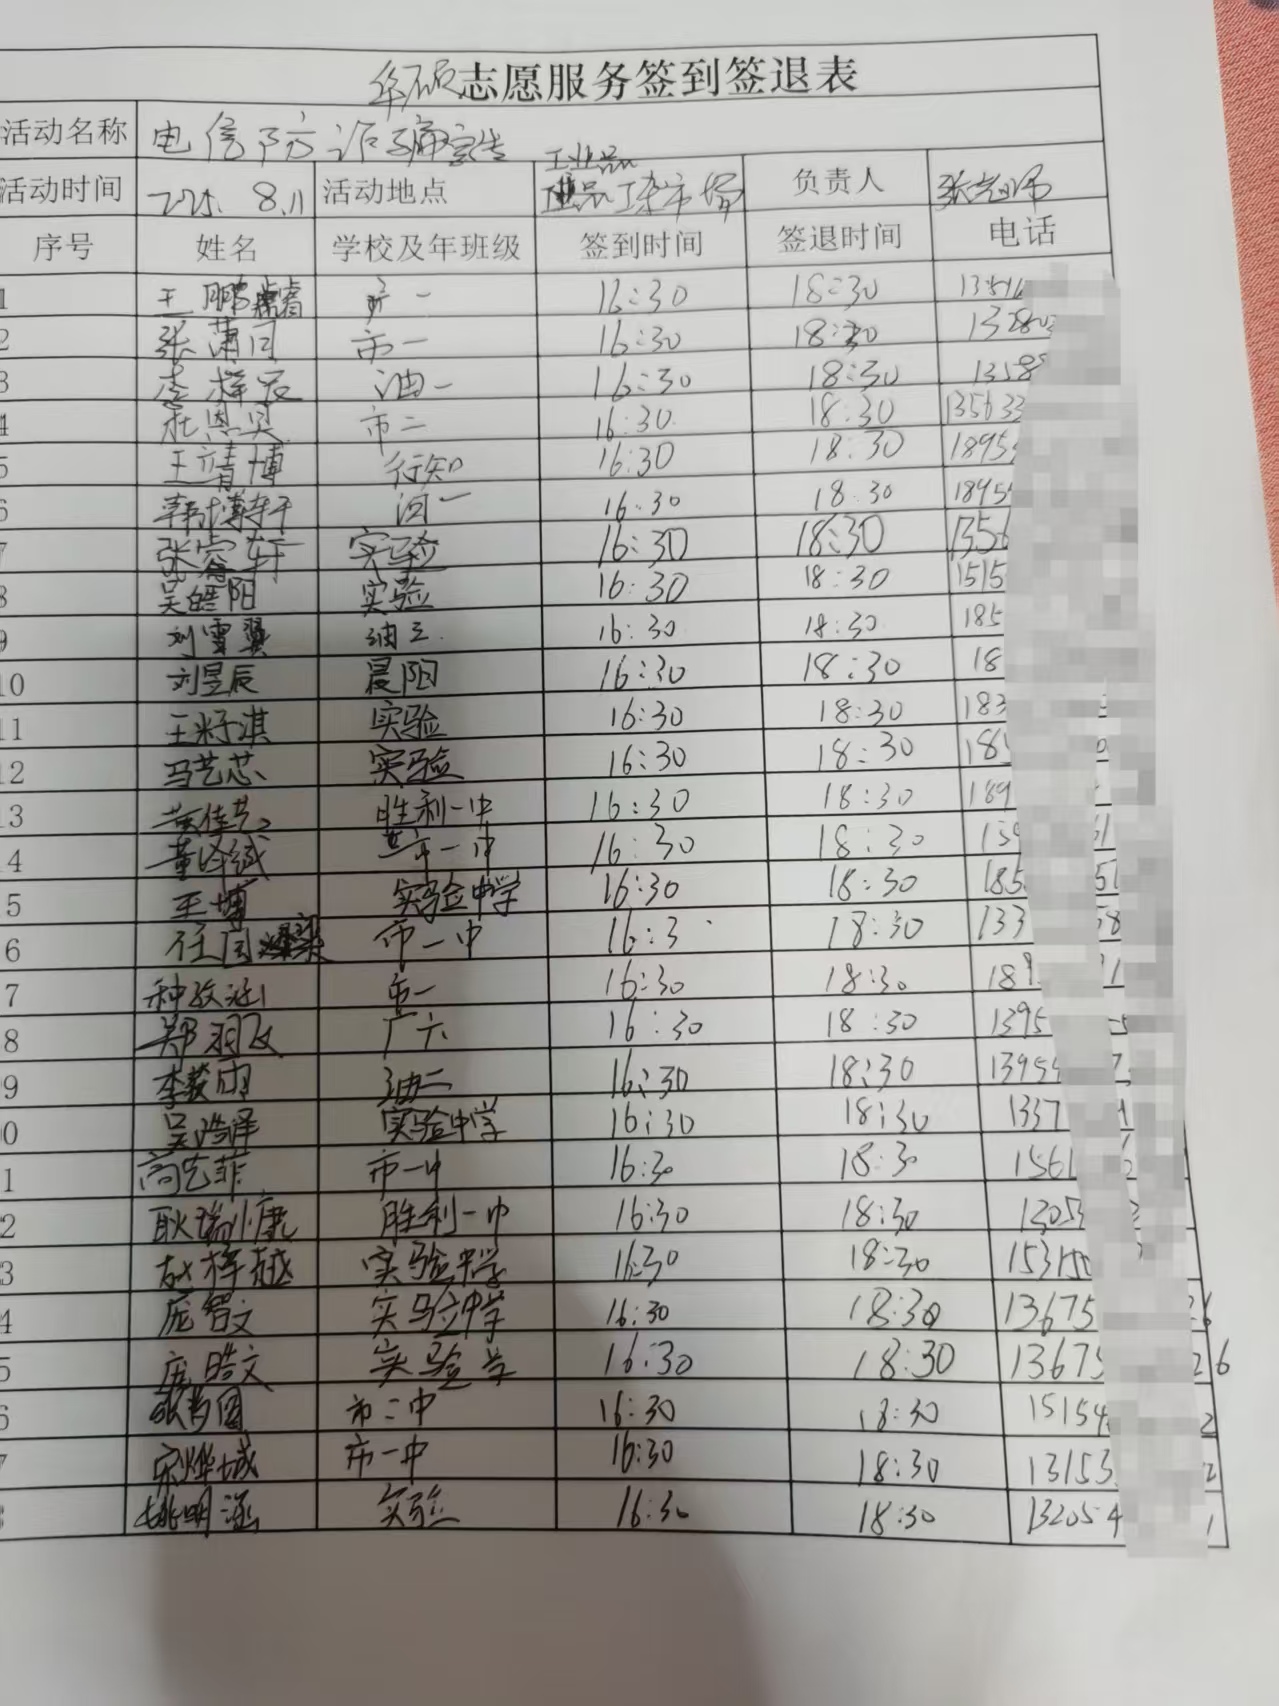 志愿服务签到签退表
活动名称 电信防诈骗宣传
活动时间 2025. 8.11 活动地点 工业品 市场 负责人 张
序号 姓名 学校及年班级 签到时间 签退时间 电话
1 王鹏睿 市一 16:30 18:30 13516
2 张蒲同 市一 16:30 18:30 13280
3 李梓辰 油一 16:30 18:30 1358
4 杜恩昊 市二 16:30 18:30 135633
5 王靖博 行知 16:30 18:30 1895
6 韩博轩 河一 16:30 18:30 1895
7 张睿轩 实验 16:30 18:30 1356
8 吴皓阳 实验 16:30 18:30 1515
9 刘雪翼 油三 16:30 18:30 185
10 刘昱辰 晨阳 16:30 18:30 18
11 王籽淇 实验 16:30 18:30 183
12 马艺芯 实验 16:30 18:30 18
13 黄佳艺 胜利一中 16:30 18:30 189
4 董泽斌 一中 16:30 18:30 15
5 王博 实验中学 16:30 18:30 185
6 任同 市一中 16:3 18:30 133
7 种孜涵 市一 16:30 18:30 189
8 郑羽飞 广六 16:30 18:30 1395
9 李荻雨 油二 16:30 18:30 13954
0 吴浩泽 实验中学 16:30 18:30 1337
1 高艺菲 市一中 16:30 18:30 1561
2 耿瑞小康 胜利一中 16:30 18:30 13053
3 赵梓越 实验中学 16:30 18:30 153150
4 庞智文 实验中学 16:30 18:30 13675 26
5 庞皓文 实验学 16:30 18:30 13675 26
6 张 国 市二中 16:30 18:30 15154 2
7 宋烨城 市一中 16:30 18:30 13153 2
8 姚明涵 实验 16:30 18:30 132054 1